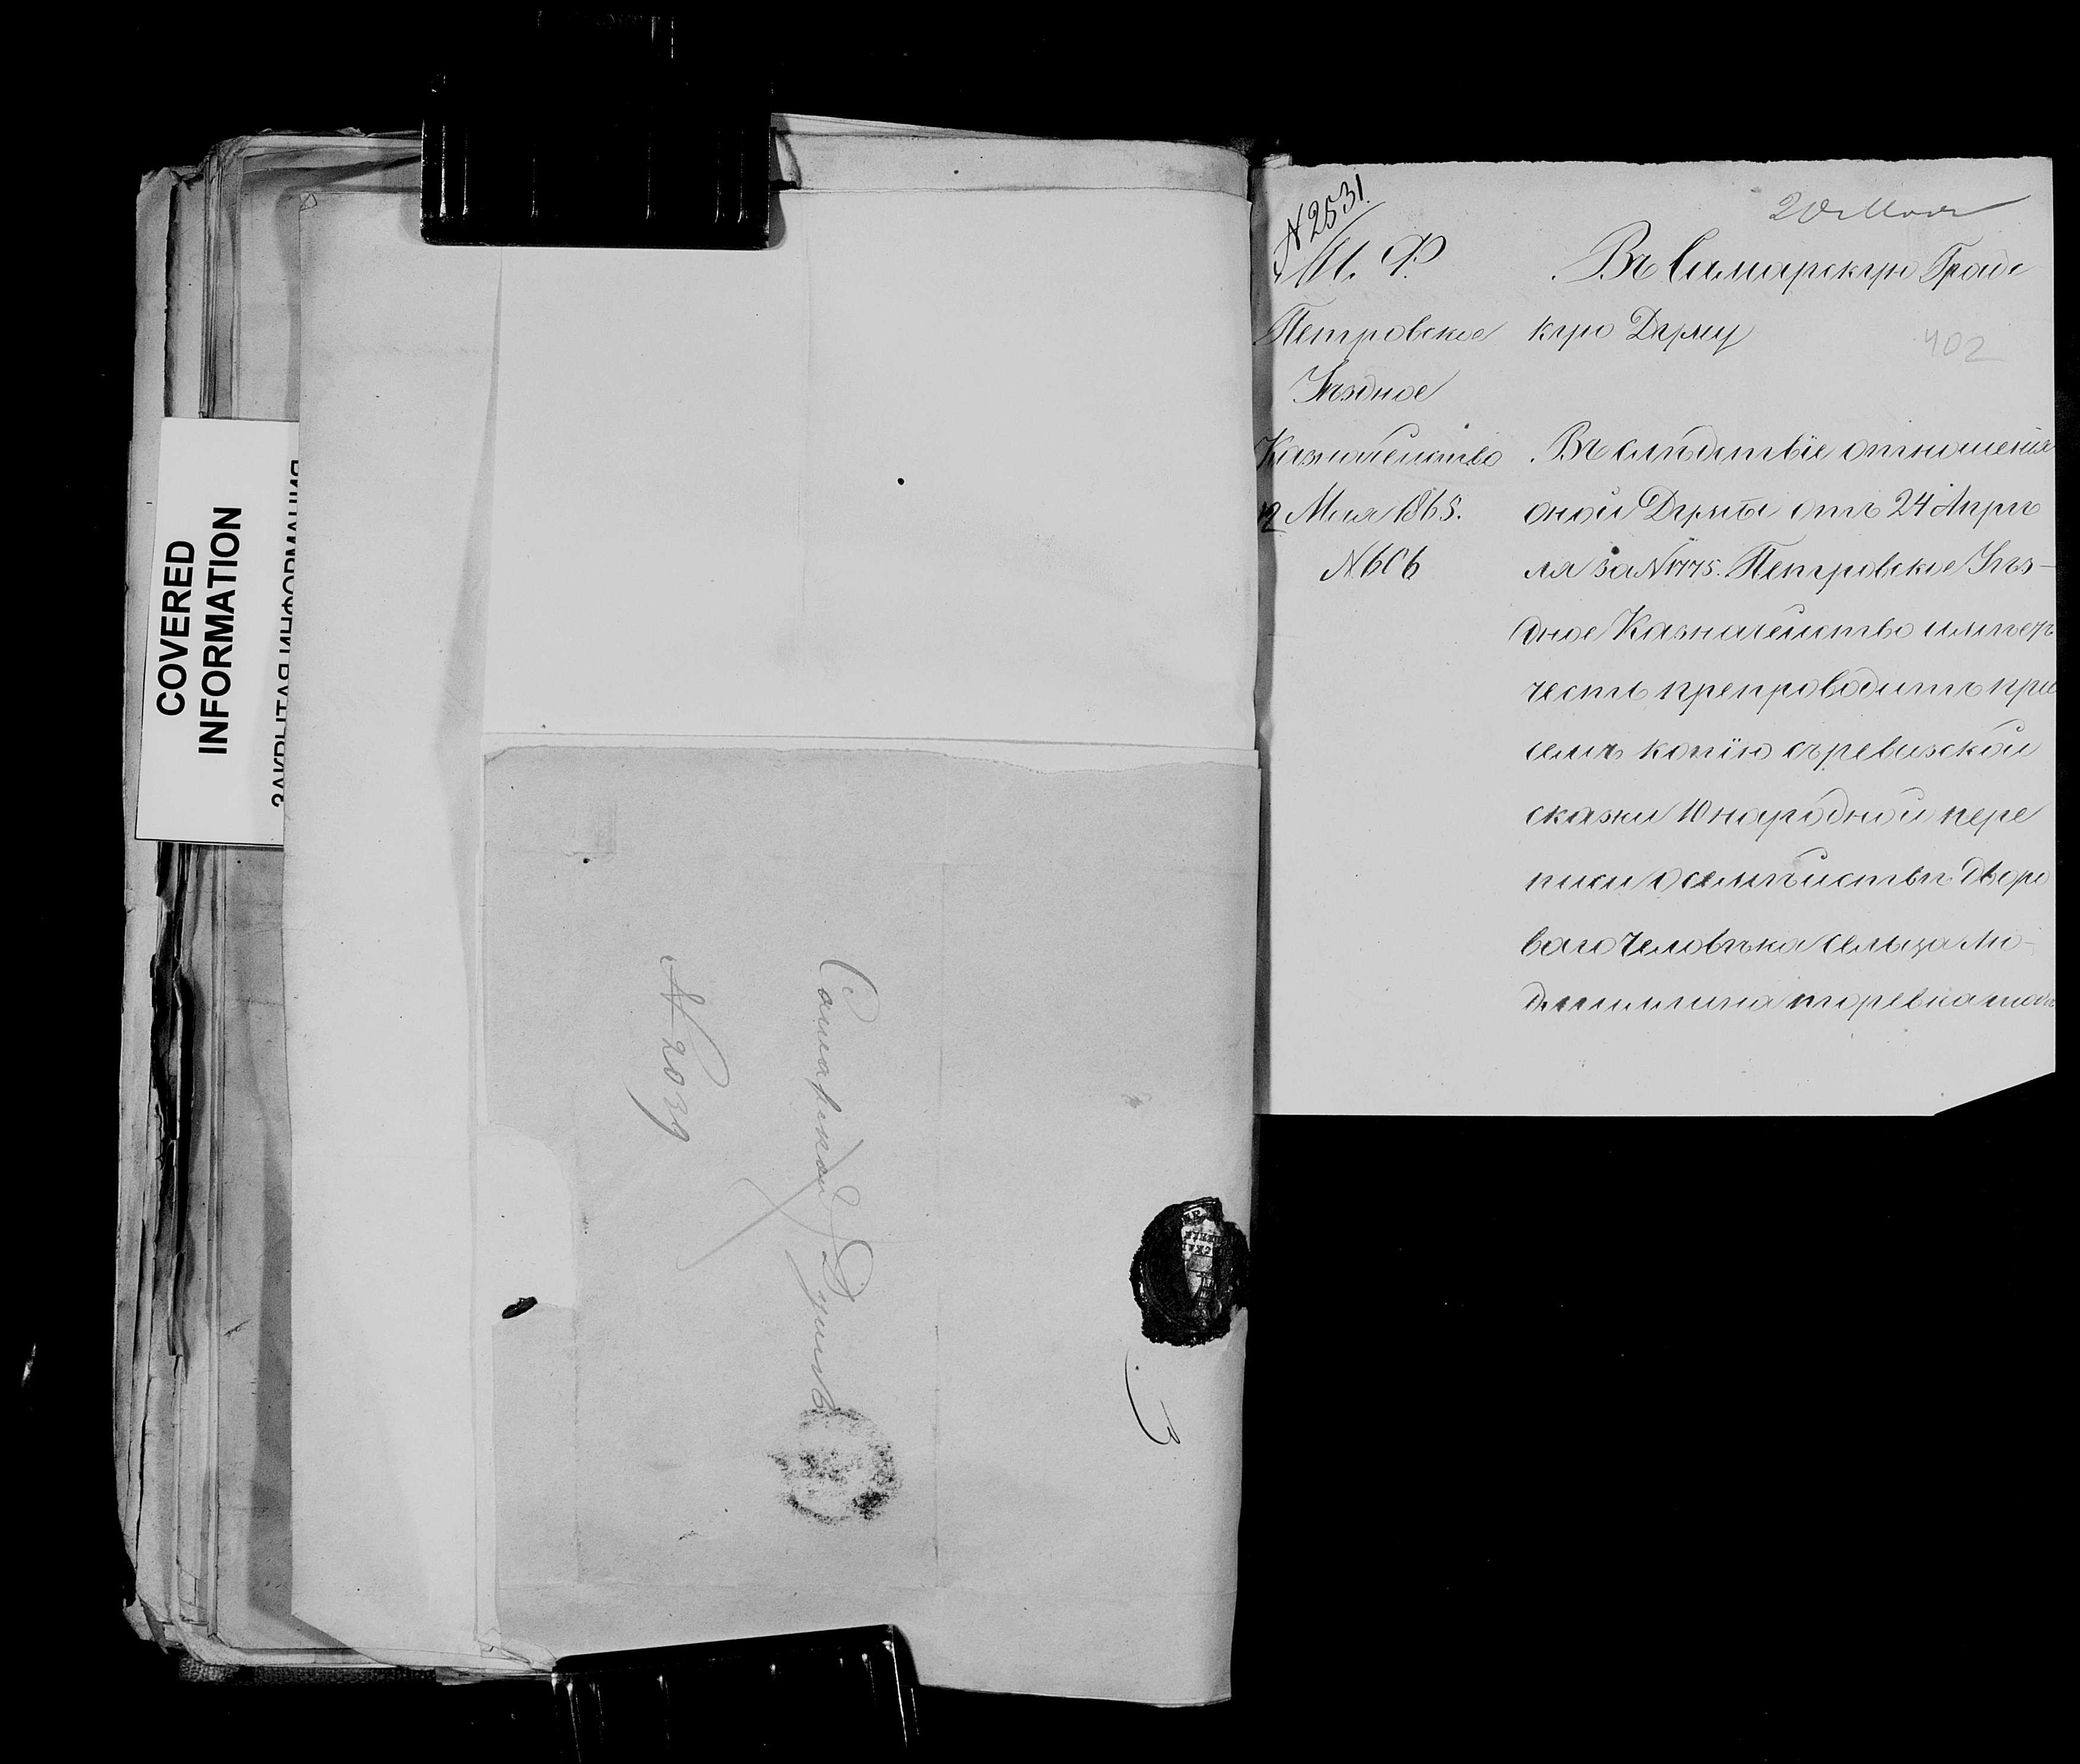 COVERED
INFORMATION
ЗАКРЫТАЯ ИНФОРМАЦИЯ
№ 2039
Самарской Думѣ
3
N 2531.
20 Мая
М. Ф.
Петровское
Уѣздное
Казначейство
12 Мая 1865.
N 606
402
Въ Самарскую Град
кую Думу
Въ слѣдствіе отношенія
оной Думы отъ 24 Апрѣ
ля за N 1775. Петровское Уѣз-
дное Казначейство имѣетъ
честь препроводить при
семъ копію съ ревизской
сказки 10 народной пере
писи о семѣйствѣ дворо
ваго человѣка сельца